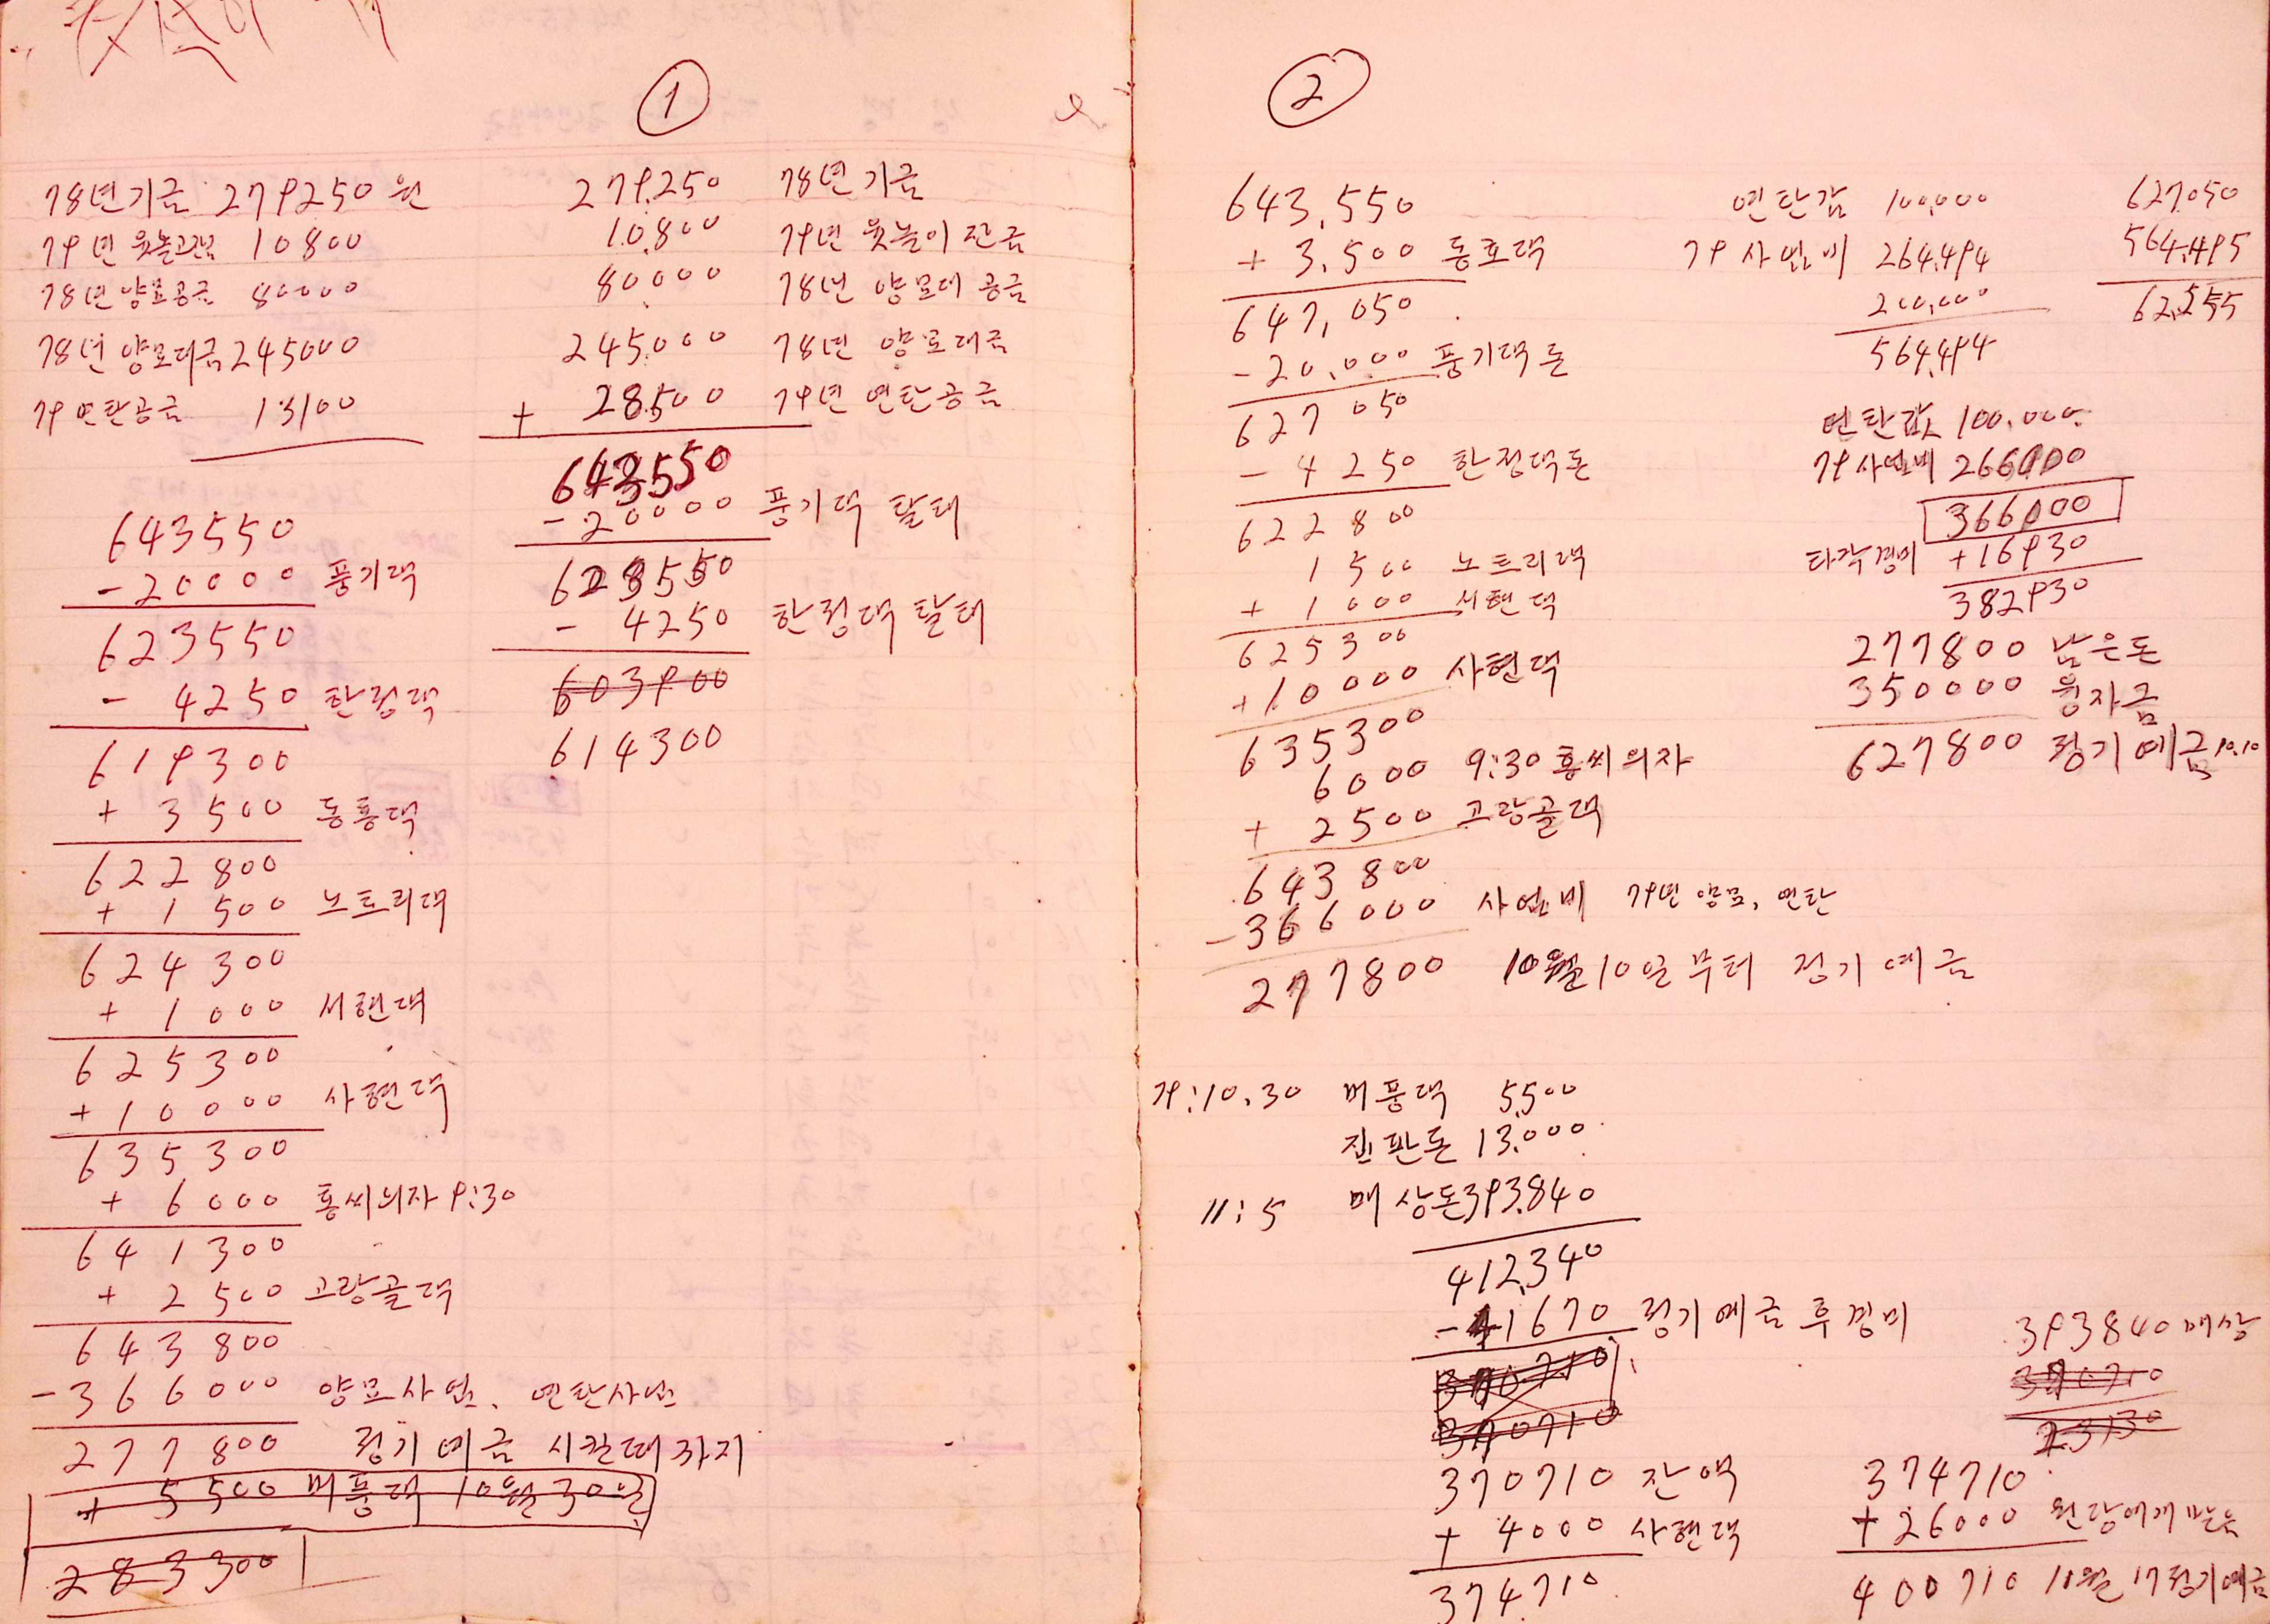 ①
78년기금 279250원
79년 윷놀 10800
78년양묘공금 80000
78년 양묘대금 245000
79 연탄공금 13100
643550
-20000 풍기댁
623550
- 4250 한정댁
619300
+ 3500 동흥댁
622800
+ 1500 노트리댁
624300
+ 1000 서현댁
625300
+10000 사현댁
635300
+ 6000 홍씨의자 9:30
641300
+ 2500 고랑골댁
643800
-366000 양묘사업、연탄사업
277800 정기예금 시킬때까지
+ 5500 머풍댁 10월30일
283300
279.250 78년기금
10.800 79년 윷놀이 잔금
80000 78년 양묘대 공금
245.000 78년 양묘대금
+ 28500 79년 연탄공금
643550
-20000 풍기댁 탈퇴
623550
- 4250 한정댁 탈퇴
603900
614300
②
643,550
+ 3,500 동흥댁
647,050
-20,000 풍기댁 돈
627050
- 4250 한정댁돈
622800
1500 노트리댁
+ 1000 서현댁
625300
+10000 사현댁
635300
6000 9:30 홍씨의자
+ 2500 고랑골댁
643800
-366000 사업비 79년 양묘, 연탄
277800 10월10일부터 정기예금
연탄값 100,000
79 사업비 264,494
200,000
564,494
627.050
564,495
62,555
연탄값 100.000
79사업비 266000
366000
타작경비 +16930
382930
277800 남은돈
350000 융자금
627800 정기예금 10.10
79:10.30 머풍댁 5500
판돈 13.000
11:5 매상돈 393.840
412.340
-41670 정기예금 후 경비
370710
370710
370710 잔액
+ 4000 사현댁
374710
393840 매상
370710
23130
374710
+26000 받음
400710 11월 17정기예금